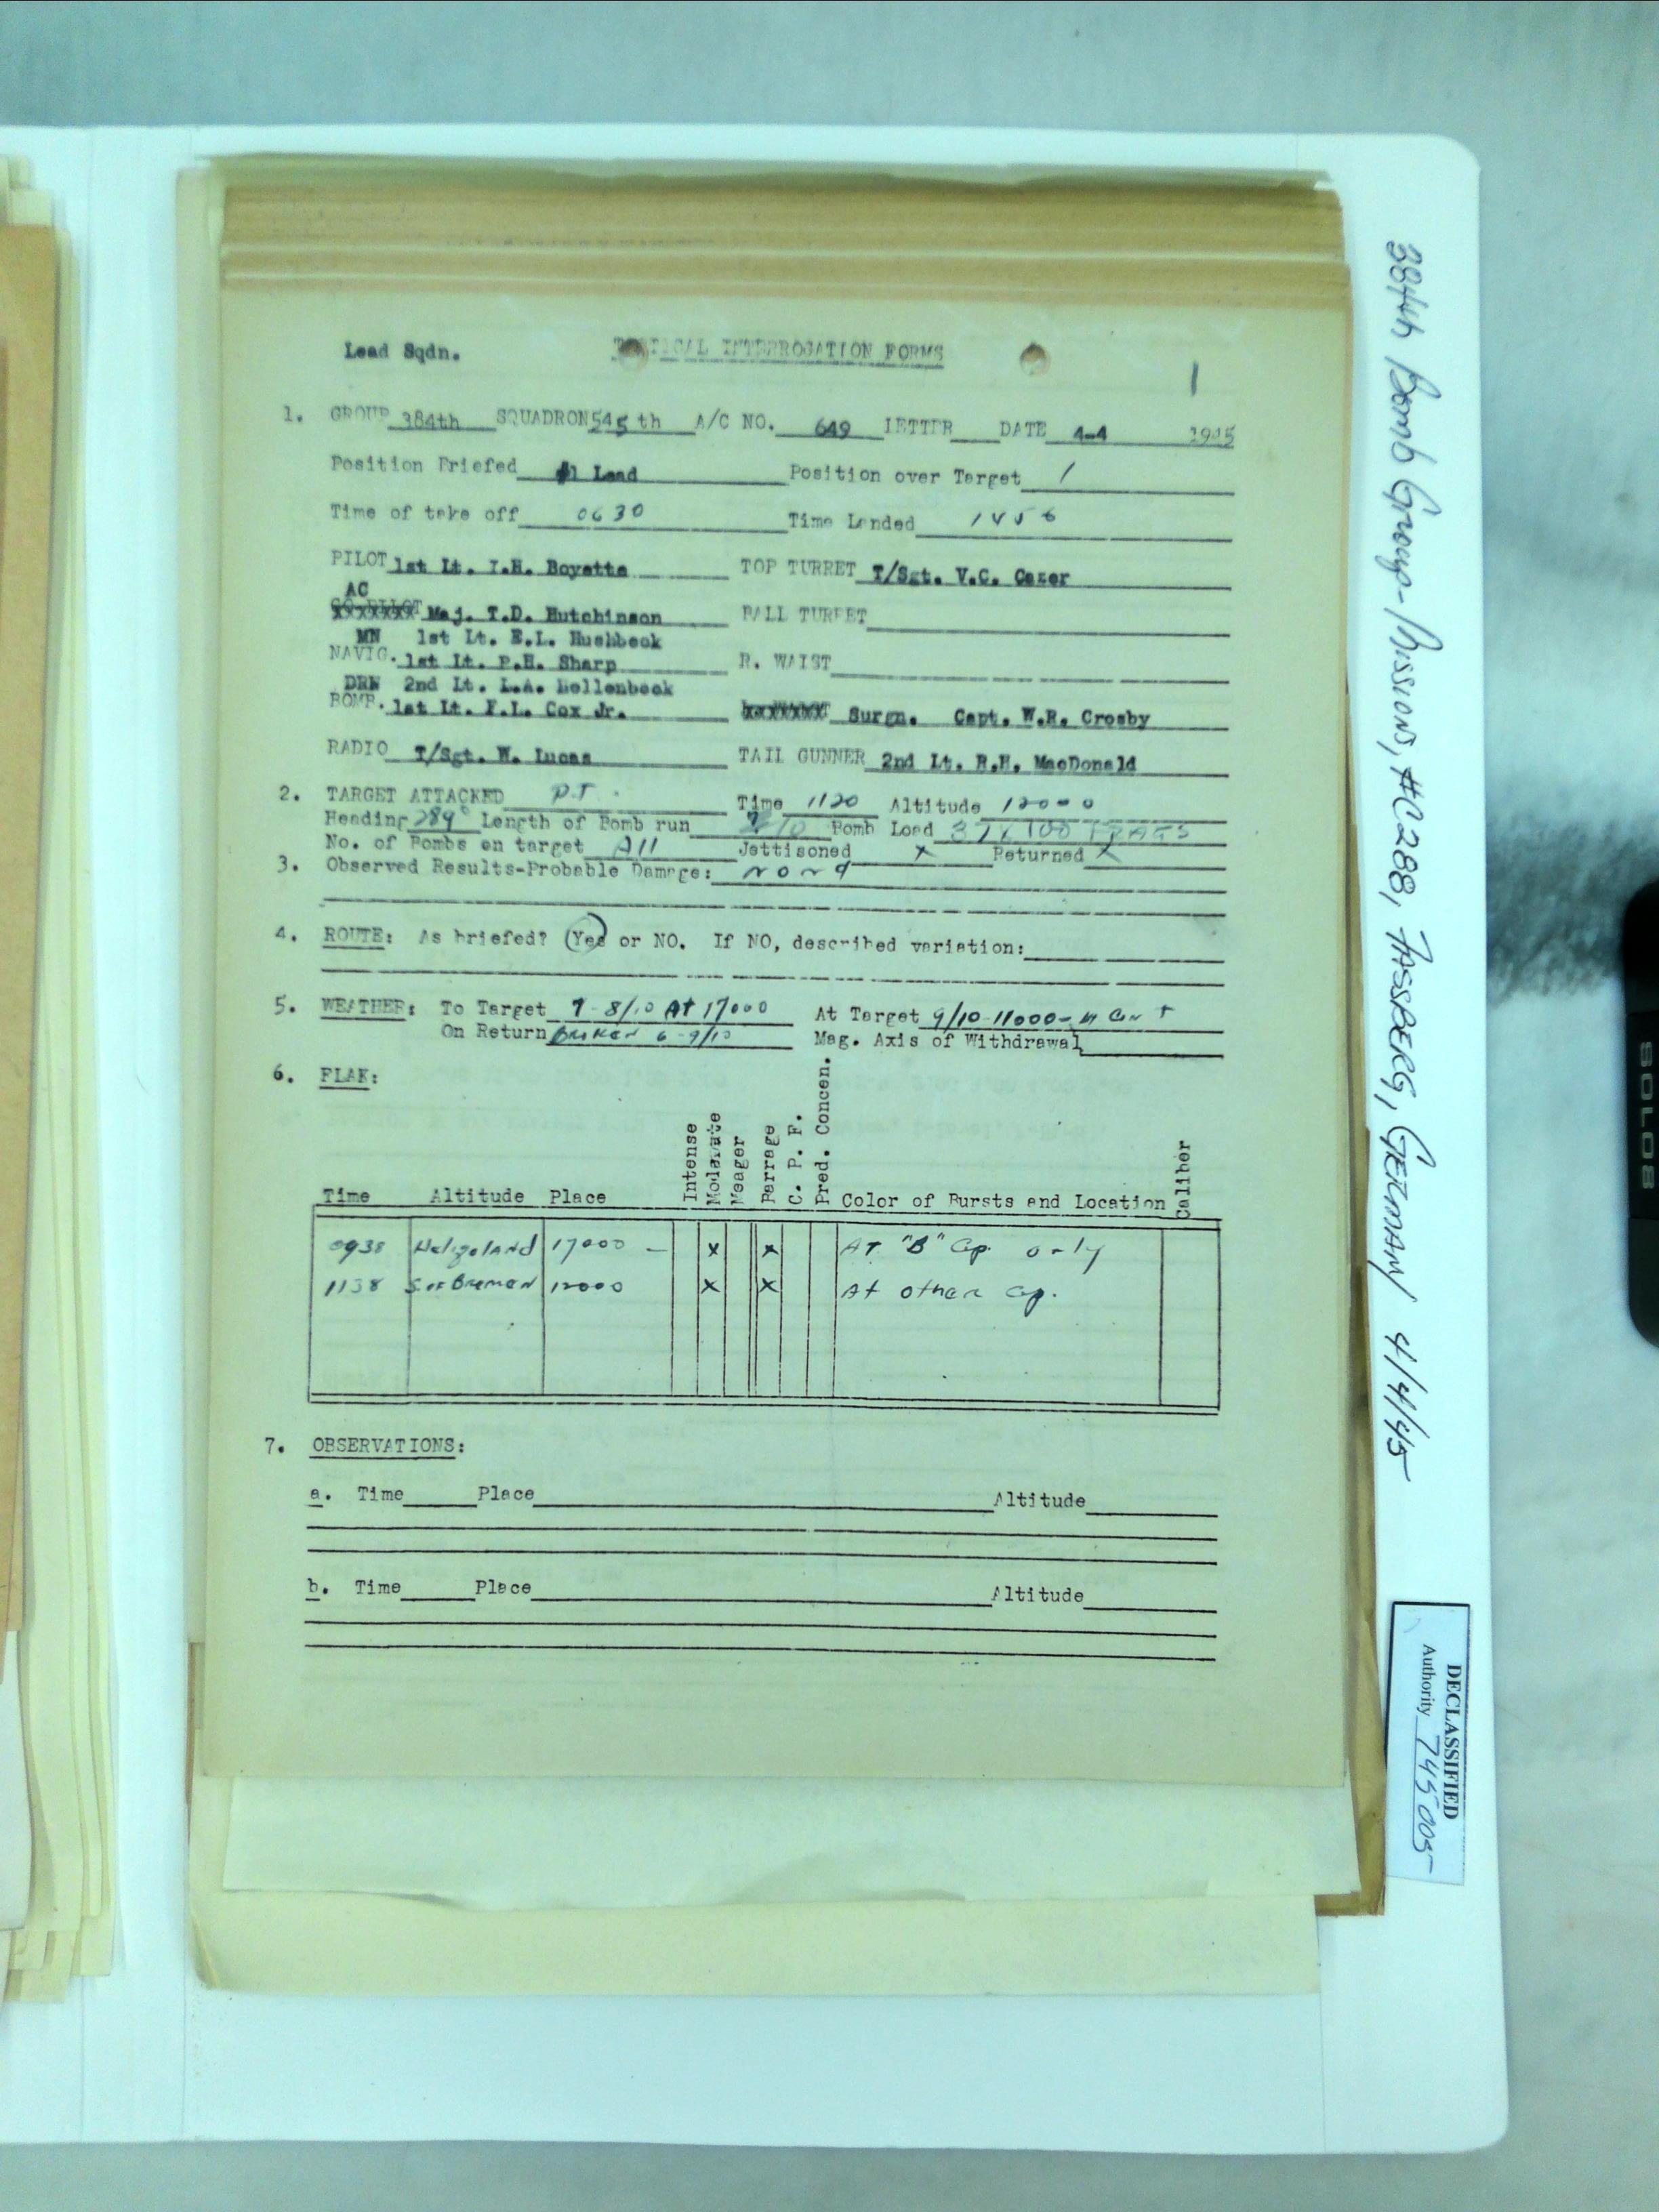 Lead Sqdn. INTERROGATION FORMS
1
1. GROUP 384th SQUADRON 545 th A/C NO. 649 LETTER DATE 4-4 1945
Position Briefed #1 Lead Position over Target 1
Time of take off 0630 Time Landed
PILOT 1st Lt. I.H. Boyette TOP TURRET T/Sgt. V.C. Cazer
AC
Maj. T.D. Hutchinson BALL TURRET
MN 1st Lt. E.L. Hushbeck
NAVIG. 1st Lt. P.H. Sharp R. WAIST
DRN 2nd Lt. L.A.
BOMB. 1st Lt. F.L. Cox Jr. Surgn. Capt. W.R. Crosby
RADIO T/Sgt. W. Lucas TAIL GUNNER 2nd Lt. R.H. MacDonald
2. TARGET ATTACKED P.T. Time 1120 Altitude 12000
Heading 289° Length of Bomb run Bomb Load
No. of Bombs on target All Jettisoned x Returned x
3. Observed Results-Probable Damage: None
4. ROUTE: As briefed? Yes or NO. If NO, described variation:
5. WEATHER: To Target 7-8/10 At 17000 At Target 9/10-11000-
On Return Broken 6-9/10 Mag. Axis of Withdrawal
6. FLAK:
Time Altitude Place Intense Moderate Meager Barrage C. P. F. Pred. Concen. Color of Bursts and Location Caliber
0938 Heligoland 17000 - x x AT "B" Gp. only
1138 S of Bremen 12000 x x At other Gp.
7. OBSERVATIONS:
a. Time Place Altitude
b. Time Place Altitude
384th Bomb Group-Missions, #C288, FASSBERG, GERMANY 4/4/45
DECLASSIFIED
Authority 745005
SOLO8